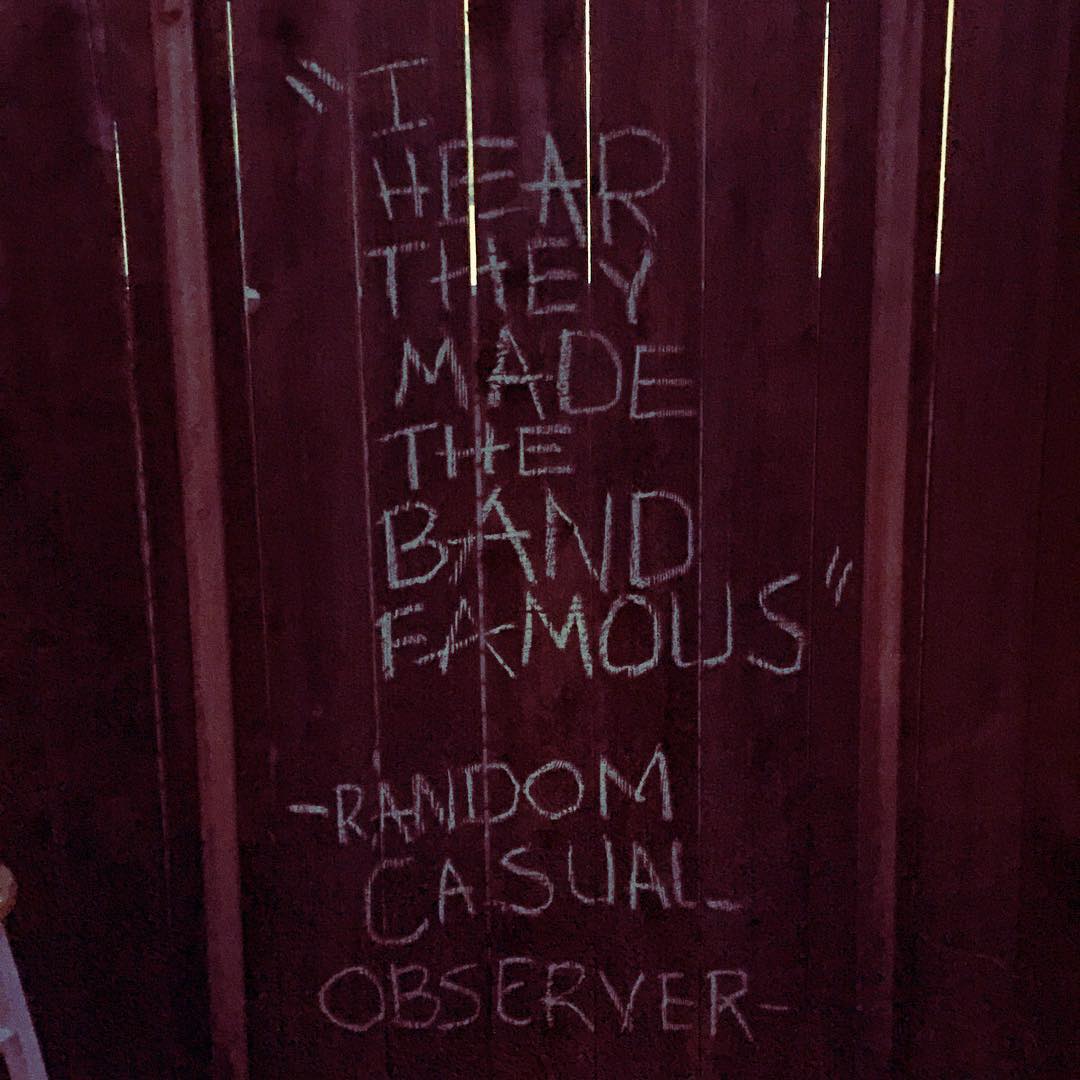 "I
HEAR
THEY
MADE
THE
BAND
FAMOUS"
-RANDOM
CASUAL
OBSERVER-